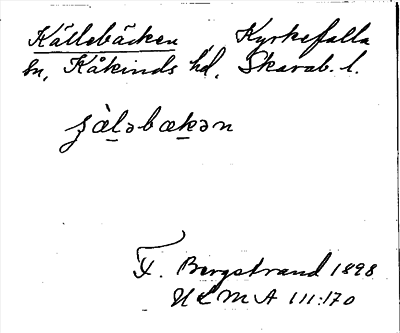 Källebäcken, Kyrkefalla
sn, Kåkinds hd, Skarab. l.
F. Bergstrand 1898
ULMA 111:170